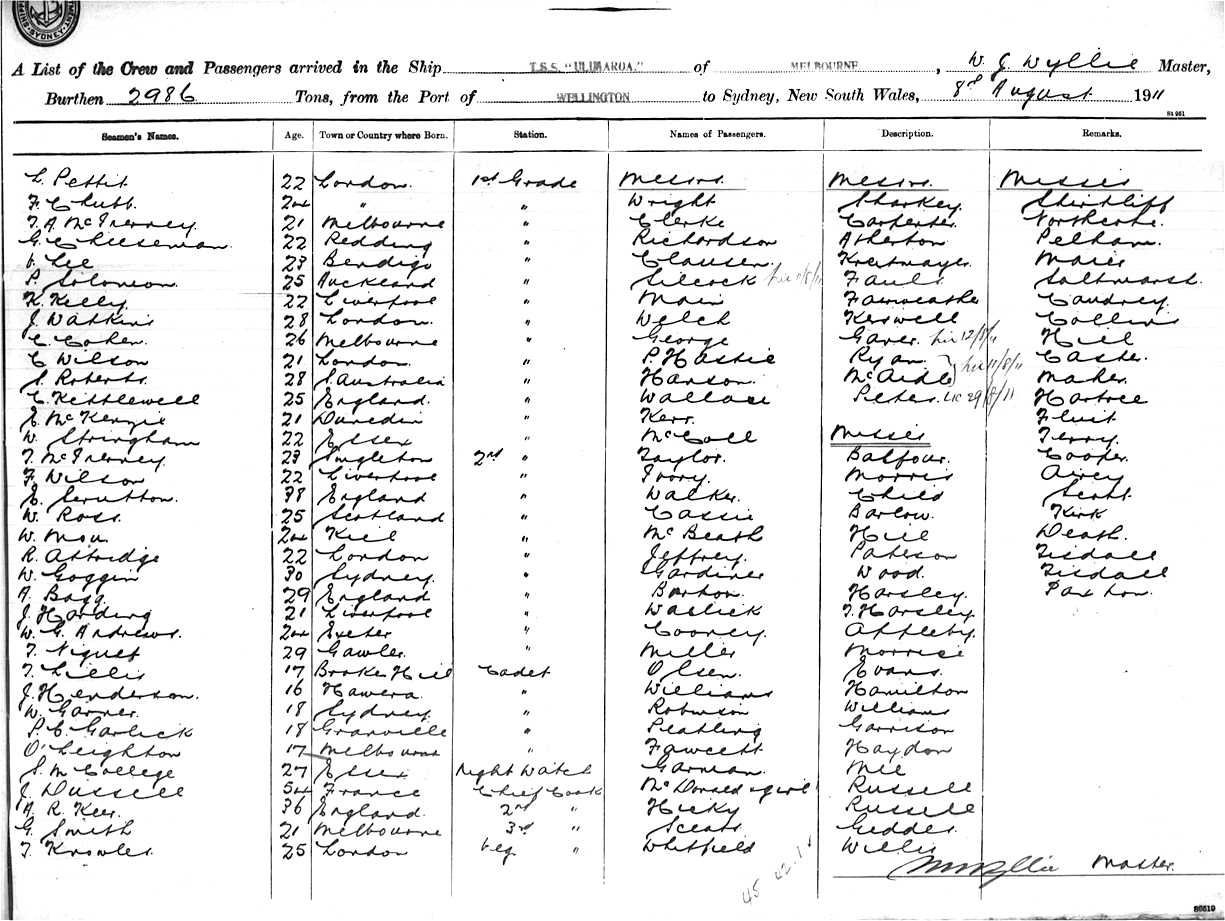 SYDNEY
A List of the Crew and Passengers arrived in the Ship T.S.S. "ULIMAROA." of MELBOURNE, W. J. Wyllie Master,
Burthen 2986 Tons, from the Port of WELLINGTON to Sydney, New South Wales, 8th August 1911
St 961
Seamen's Names. Age. Town or Country where Born. Station. Names of Passengers. Description. Remarks.
L. Pettit 22 London. 1st Grade Messrs. Messrs. Misses
F. Chubb 24 " " Wright Sharkey Shirtliff
T. A. McInerney 21 Melbourne " Clerke Carpenter Northcote.
G. Cheeseman. 22 Redding " Richardson Atherton Pelham.
Lee 23 Bendigo " Clausen Main
P. Solomon. 25 Auckland " Silcock Fauls Saltmarsh
K. Kelly 22 Liverpool " Main Fairweather Caudrey.
J. Watkins 28 London. " Welch Keswell Collins
C. Cohen. 26 Melbourne " George 12/8/11 Hill
C Wilson 21 London. " P. Hastie Ryan 11/8/11 Caster.
S. Roberts. 28 S. Australia " Hanson. McArdle Maher.
C. Kettlewell 25 England. " Wallace Peter. 29/8/11 Hartree
E. McKenzie 21 Dunedin " Kerr. Fluit
W. Stringham 22 Essex " McColl Misses Terry.
T. McInerney 23 Singleton 2nd " Taylor. Balfour. Cooper
F. Wilson 22 Liverpool " Ivory. Morris Airey
E. Scrutton. 38 England " Walker. Child Scott
W. Ross. 25 Scotland " Cassie Barlow. Kirk
W. 24 Kiel " McBeath Hill Death.
R. Attridge 22 London " Jeffrey. Paterson Tisdall
W. Goggin 30 Sydney. " Gardiner Wood. Tisdall
A. Bagg. 29 England " Barton. Horsley. Paxton.
J. Harding 21 Liverpool " Warlick T. Horsley
W. G. Andrews. 24 Exeter " Cooney. Appleby.
T. Niquet 29 Gawler. " Miller Morrise
T. Lillis 17 Broken Hill Cadet Olsen. Evans.
J. Henderson. 16 Hawera. " Williams Hamilton
W. Garner. 18 Sydney " Robinson Williams
P. C. Garlick 18 Granville " Garrison
O'Leighton 17 Melbourne " Fawcett Haydon
S. McColgee 27 Essex Night Watch Garman. Mil
J. Dussell 54 France Chief Cook McDonald & girl Russell
A. R. Keer. 36 England 2nd " Hicky Russell
G. Smith 21 Melbourne 3rd " Scears Geddes
T. Knowles. 25 London Veg " Whitfield Willis
W J Wyllie Master.
S6519